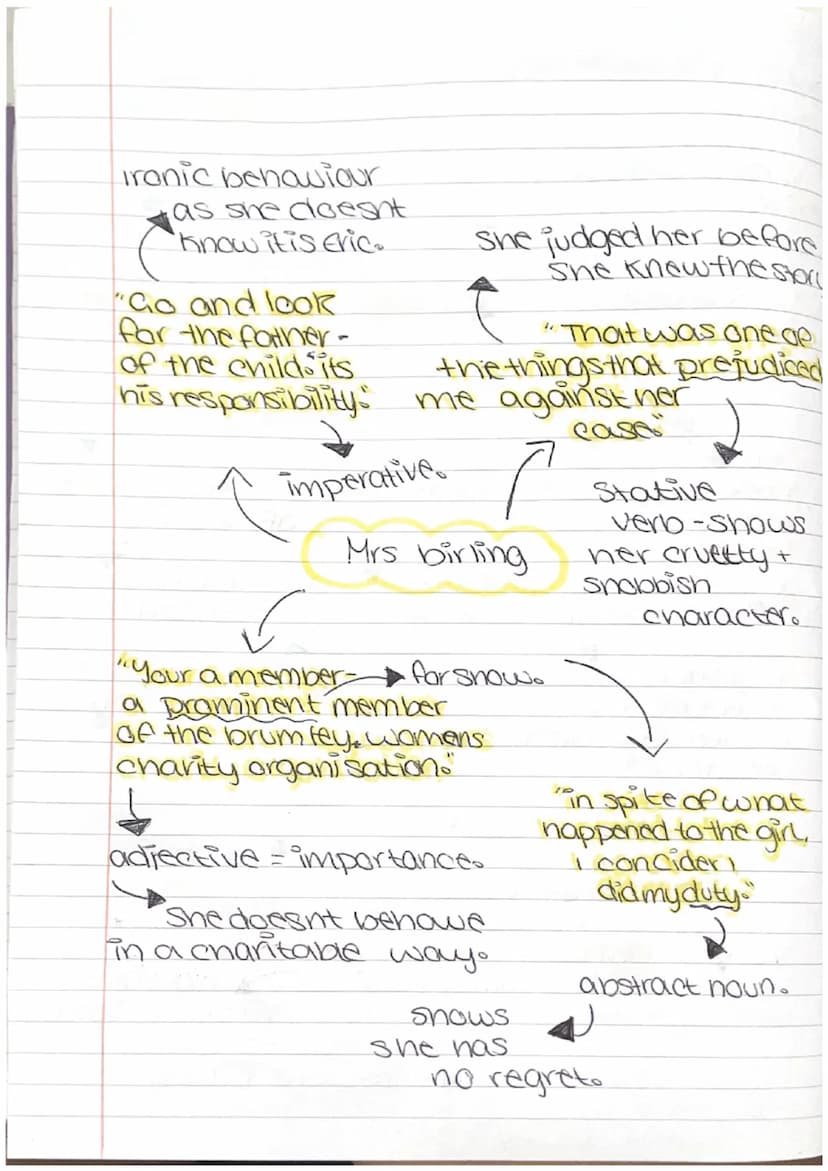 ironic behaviour
as she doesnt
know it is eric.
"Go and look
for the father -
of the child. its
his responsibility."
imperative.
she judged her before
she knew the story
"That was one of
the things that prejudiced
me against her
case."
Stative
verb - shows
her cruelty +
snobbish
character.
Mrs birling
"Your a member-
a prominent member
of the brumley. womens
charity organisation."
for show.
adjective = importance.
She doesnt behave
in a charitable way.
"in spite of what
happened to the girl,
i concider i
did my duty."
abstract noun.
shows
she has
no regret.